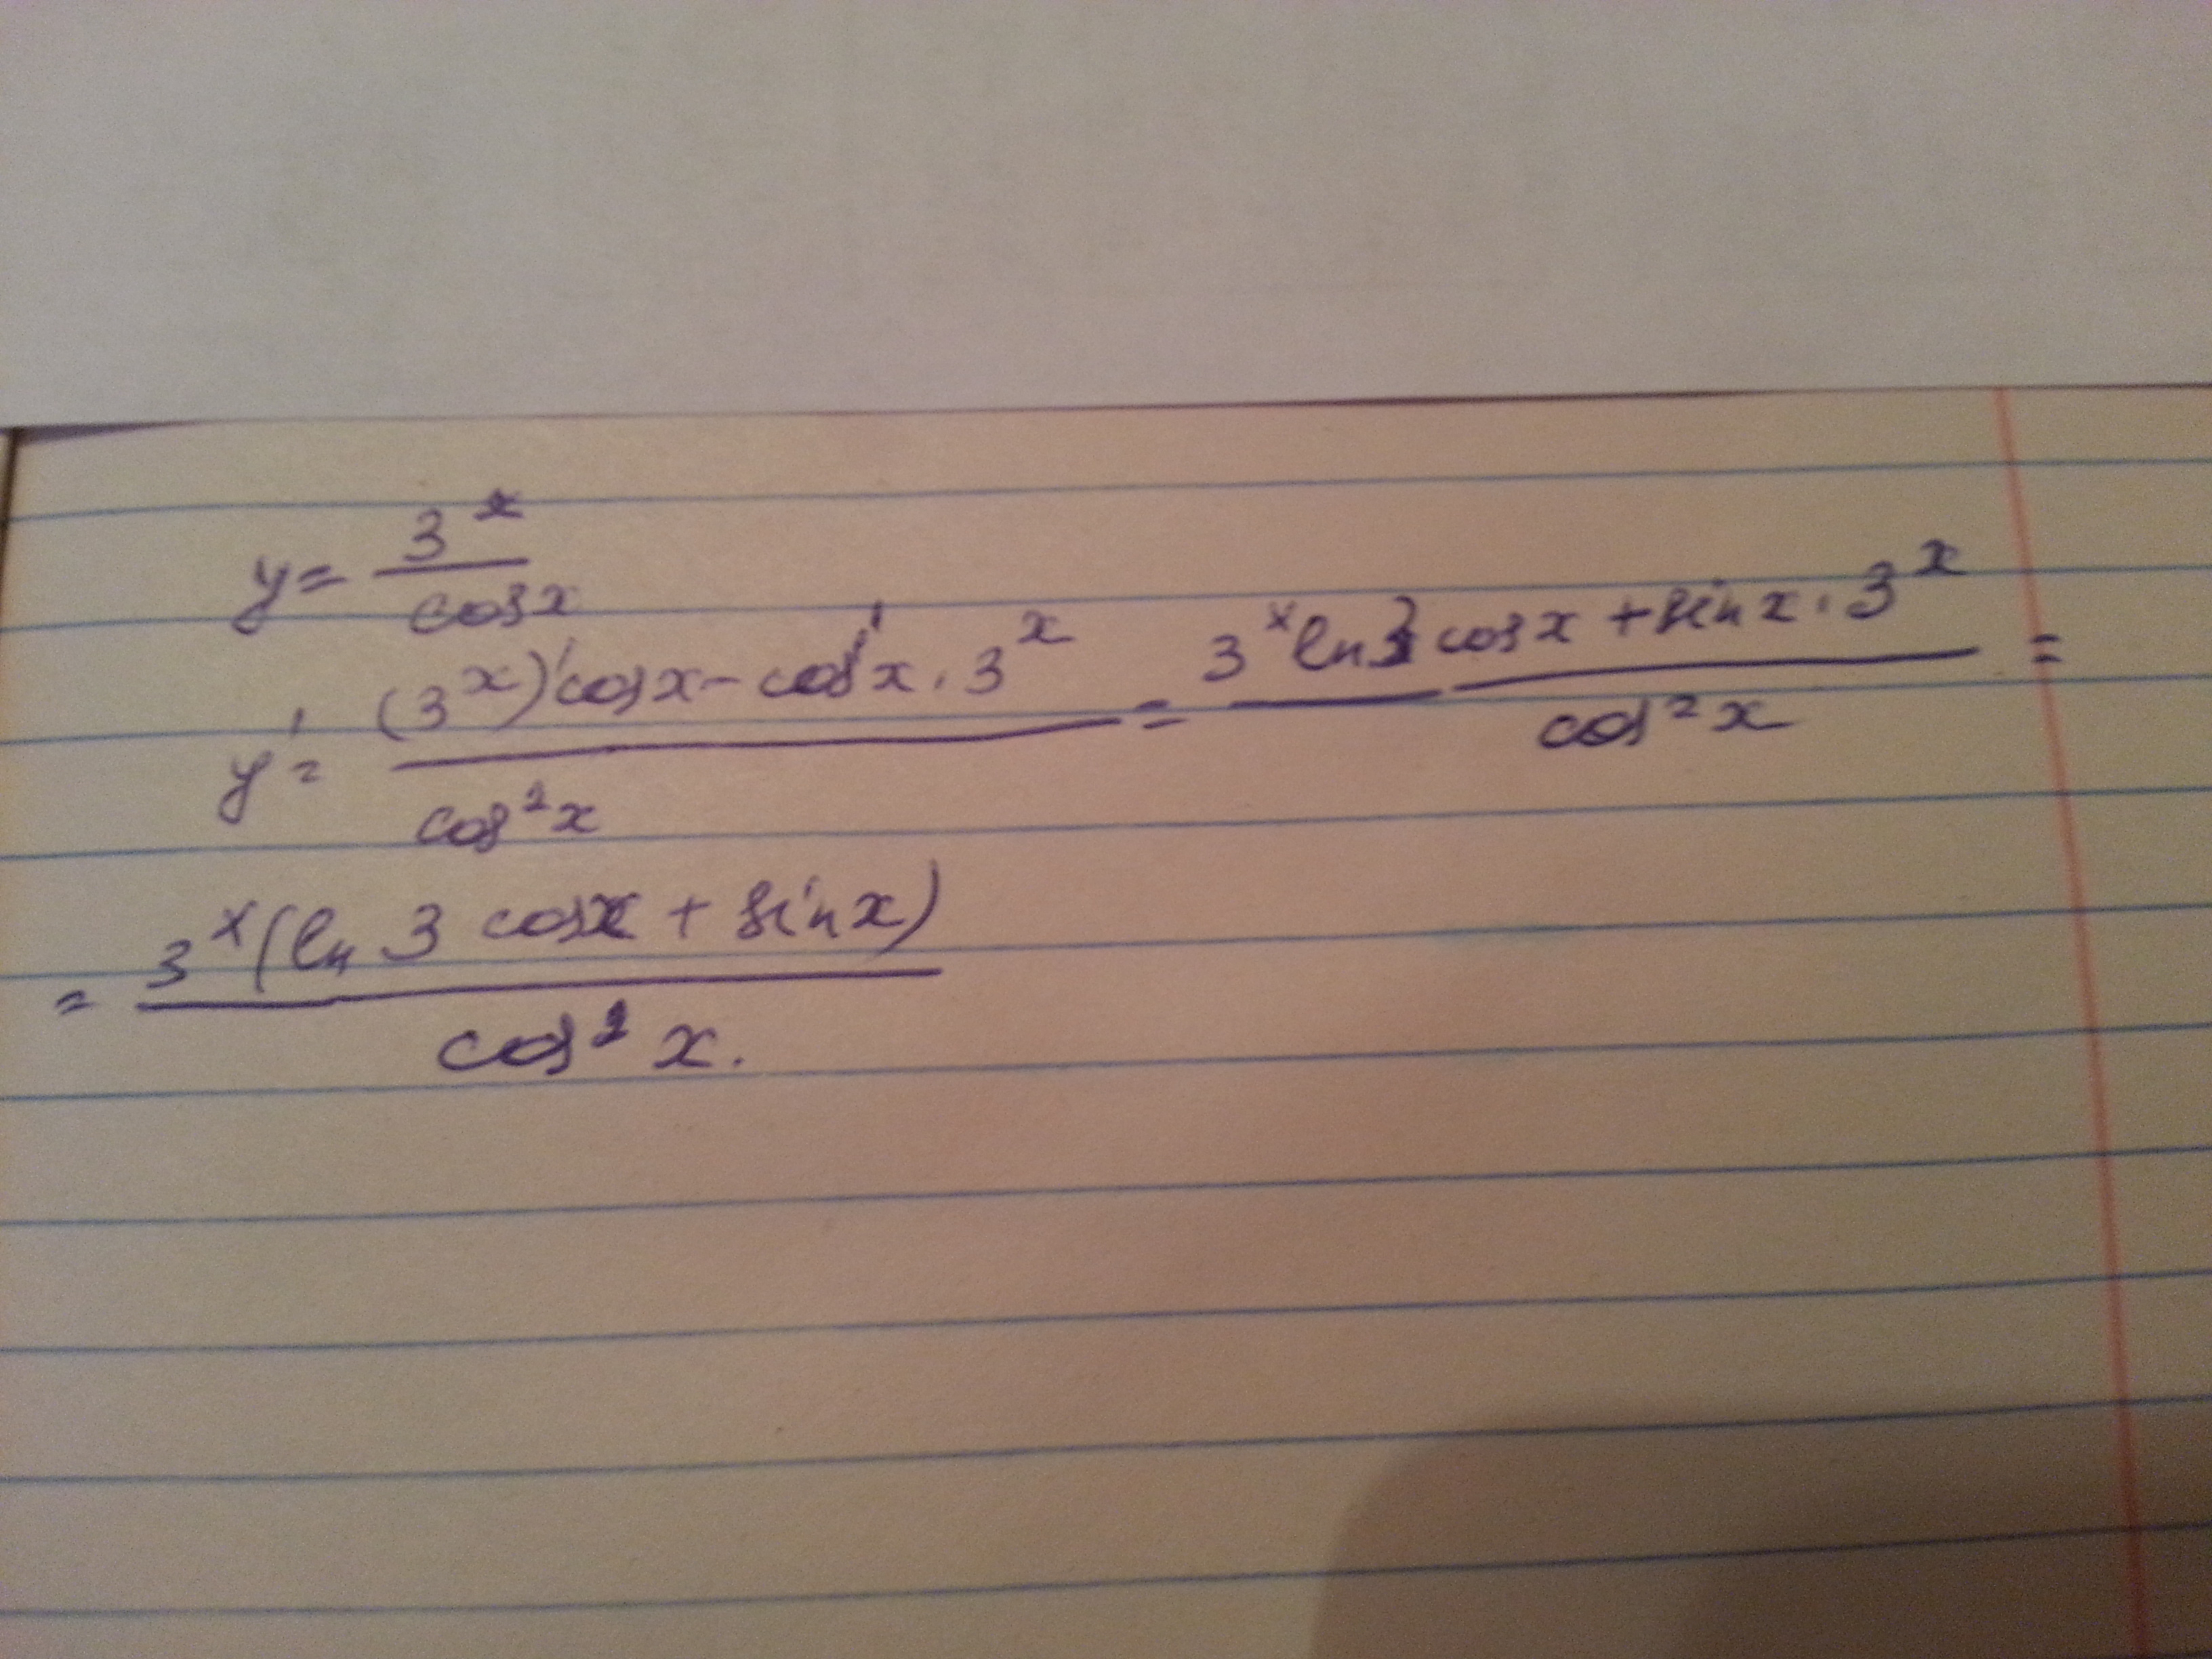 y = 3^x / cos x
y' = ((3^x)' cos x - cos' x · 3^x) / cos²x = (3^x ln 3 cos x + sin x · 3^x) / cos²x =
= 3^x (ln 3 cos x + sin x) / cos² x.